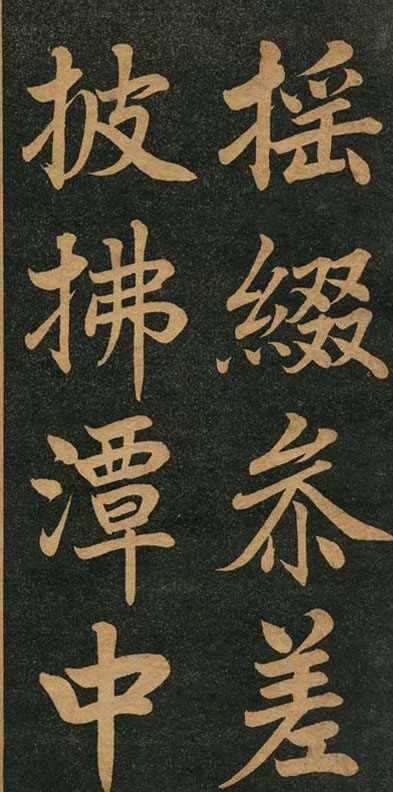 摇綴参差
披拂潭中